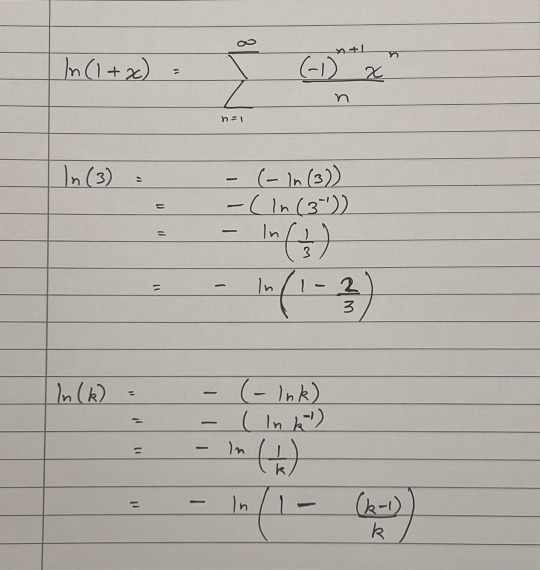 ln(1+x) = ∞ ∑ n=1 (-1)^(n+1) x^n / n
ln(3) = - (-ln(3))
= -( ln(3⁻¹))
= - ln(1/3)
= - ln(1 - 2/3)
ln(k) = - (- ln k)
= - ( ln k⁻¹)
= - ln (1/k)
= - ln (1 - (k-1)/k)